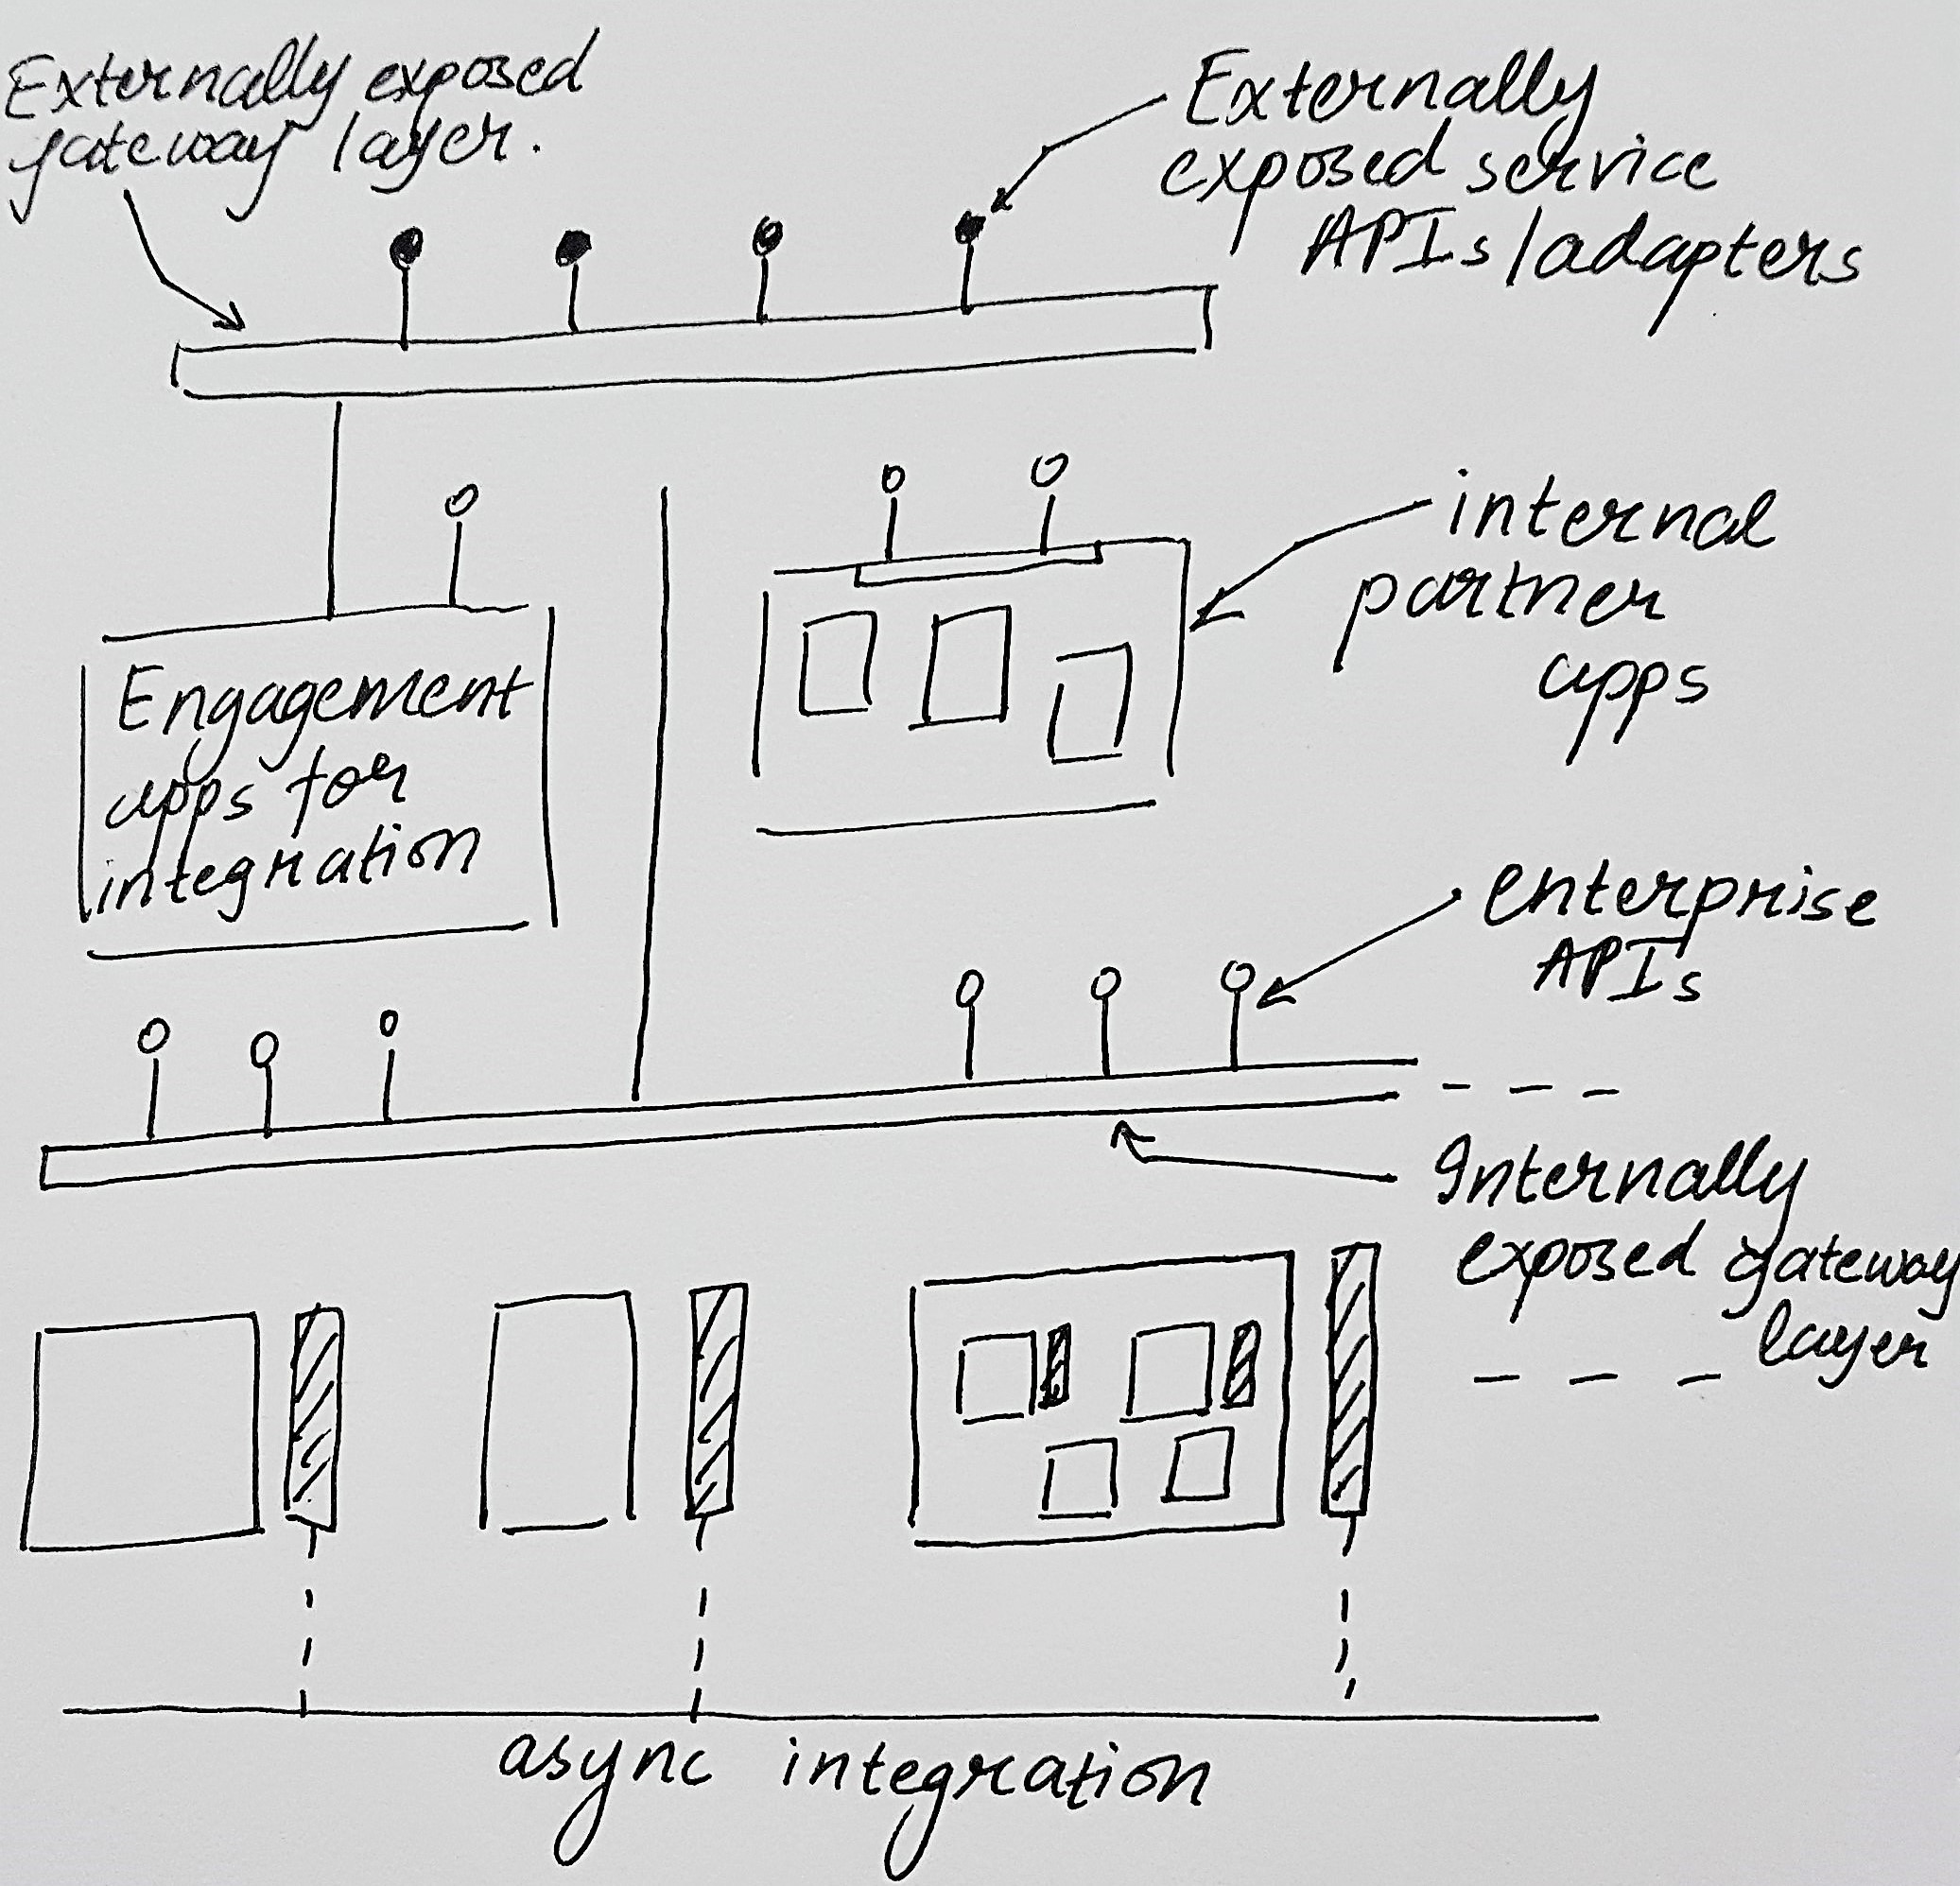 Externally exposed
gateway layer.
Externally
exposed service
APIs/adapters
internal
partner
apps
Engagement
apps for
integration
enterprise
APIs
Internally
exposed gateway
layer
async integration